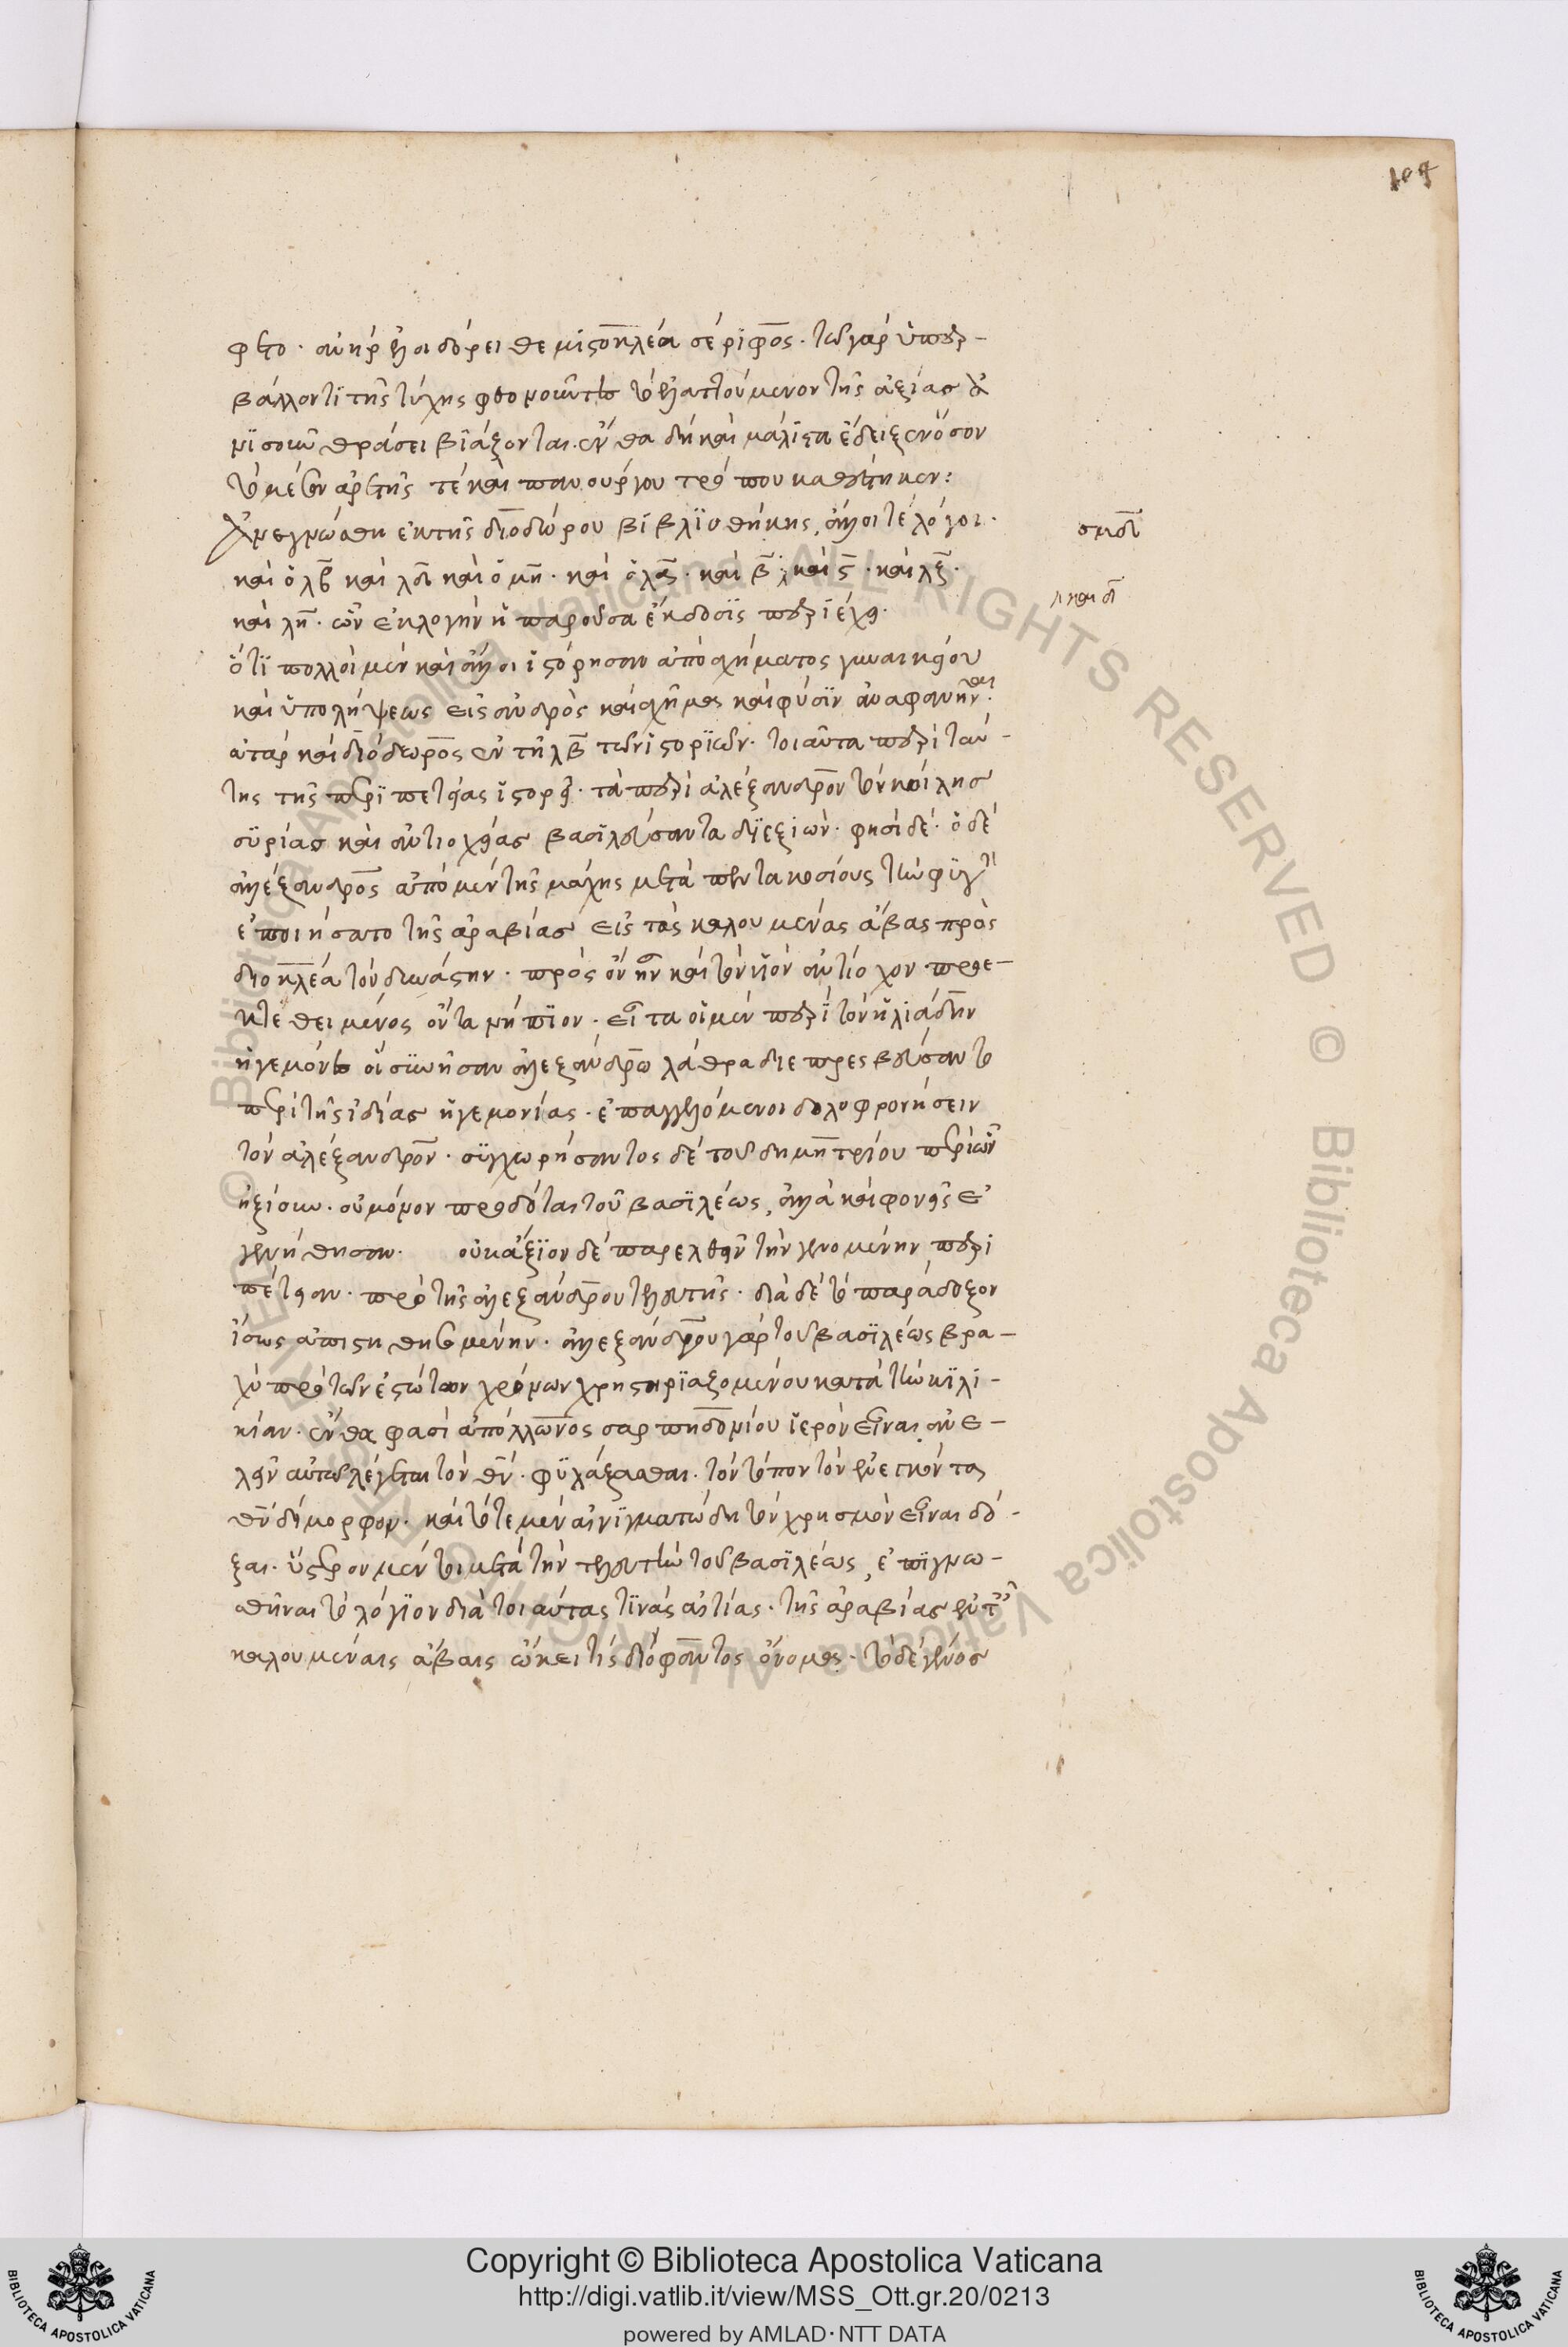 109
φετο. ἀνὴρ ἐλοιδόρει θεμιστοκλέα σερίφιος. τῶ γὰρ ὑπερ-
βάλλοντι τῆς τύχης φθονοῦντες τὸ ἐλαττούμενον τῆς ἀξίας
μισοῦν θράσει βιάζονται. ἔνθα δὴ καὶ μάλιστα ἔδειξεν ὅσον
τὸ μέσον ἀρετῆς τὲ καὶ πανούργου τρόπου καθέστηκεν:
Ἀνεγνώσθη ἐκ τῆς διοδώρου βιβλιοθήκης, ἄλλοι τε λόγοι.
σμδ
καὶ ὁ λβ καὶ λδ καὶ ὁ μη. καὶ ὁ λα. καὶ β. καὶ ϛ. καὶ λζ.
καὶ λη. ὧν ἐκλογὴν ἡ παροῦσα ἔκδοσις περιέχει.
καὶ δ
ὅτι πολλοὶ μὲν καὶ ἄλλοι ἱστόρησαν ἀπὸ σχήματος γυναικείου
καὶ ὑπολήψεως εἰς ἀνδρὸς καὶ σχῆμα καὶ φύσιν ἀναφανῆναι.
ἀτὰρ καὶ διόδωρος ἐν τῆ λβ τῶν ἱστοριῶν. τοιαῦτα περὶ ταύ-
της τῆς περιπετείας ἱστορεῖ. τὰ περὶ ἀλέξανδρον τὸν κοίλης
συρίας καὶ ἀντιοχείας βασιλεύσαντα διεξιών. φησὶ δέ. ὁ δὲ
ἀλέξανδρος ἀπὸ μὲν τῆς μάχης μετὰ πεντακοσίους τὴν φυγὴ
ἐποιήσατο τῆς ἀραβίας εἰς τὰς καλουμένας ἄβας πρὸς
διοκλέα τὸν δυνάστην. πρὸς ὃν ἦν καὶ τὸν υἱὸν ἀντίοχον προε-
κτεθειμένος ὄντα νήπιον. εἶτα οἱ μὲν περὶ τὸν ἡλιάδην
ἡγεμόνες οἳ συνῆσαν ἀλεξάνδρω λάθρα διεπρεσβεύσαντο
περὶ τῆς ἰδίας ἡγεμονίας. ἐπαγγελόμενοι δολοφρονήσειν
τὸν ἀλέξανδρον. συγχωρήσαντος δὲ τοῦ δημητρίου περὶ ὧν
ἠξίουν. οὐ μόνον προδόται τοῦ βασιλέως, ἀλλὰ καὶ φονεῖς ἐ
γενήθησαν. οὐκ ἄξιον δὲ παρελθεῖν τὴν γενομένην περι
πέτειαν. πρὸ τῆς ἀλεξάνδρου τελευτῆς. διὰ δὲ τὸ παράδοξον
ἴσως ἀπιστηθησομένην. ἀλεξάνδρου γὰρ τοῦ βασιλέως βρα-
χὺ πρὸ τῶν ἐστώτων χρόνων χρηστηριαζομένου κατὰ τὴν κιλι-
κίαν. ἔνθα φασὶ ἀπόλλωνος σαρπηδονίου ἱερὸν εἶναι ἀνε-
λεῖν αὐτῶ λέγεται τὸν θν. φυλάξασθαι. τὸν τόπον τὸν ἐνεγκόντα
τὸν δίμορφον. καὶ τότε μὲν αἰνιγματώδη τὸν χρησμὸν εἶναι δό-
ξαι. ὕστερον μέντοι μετὰ τὴν τελευτὴν τοῦ βασιλέως, ἐπιγνω-
σθῆναι τὸ λόγιον διὰ τοιαύτας τινὰς αἰτίας. τῆς ἀραβίας ἐν ταῖς
καλουμέναις ἄβαις ὤκει τίς διόφαντος ὄνομα. τὸ δὲ γένος
Copyright © Biblioteca Apostolica Vaticana
http://digi.vatlib.it/view/MSS_Ott.gr.20/0213
powered by AMLAD·NTT DATA
BIBLIOTECA APOSTOLICA VATICANA
BIBLIOTECA APOSTOLICA VATICANA
© Biblioteca Apostolica Vaticana ALL RIGHTS RESERVED © Biblioteca Apostolica Vaticana ALL RIGHTS RESERVED